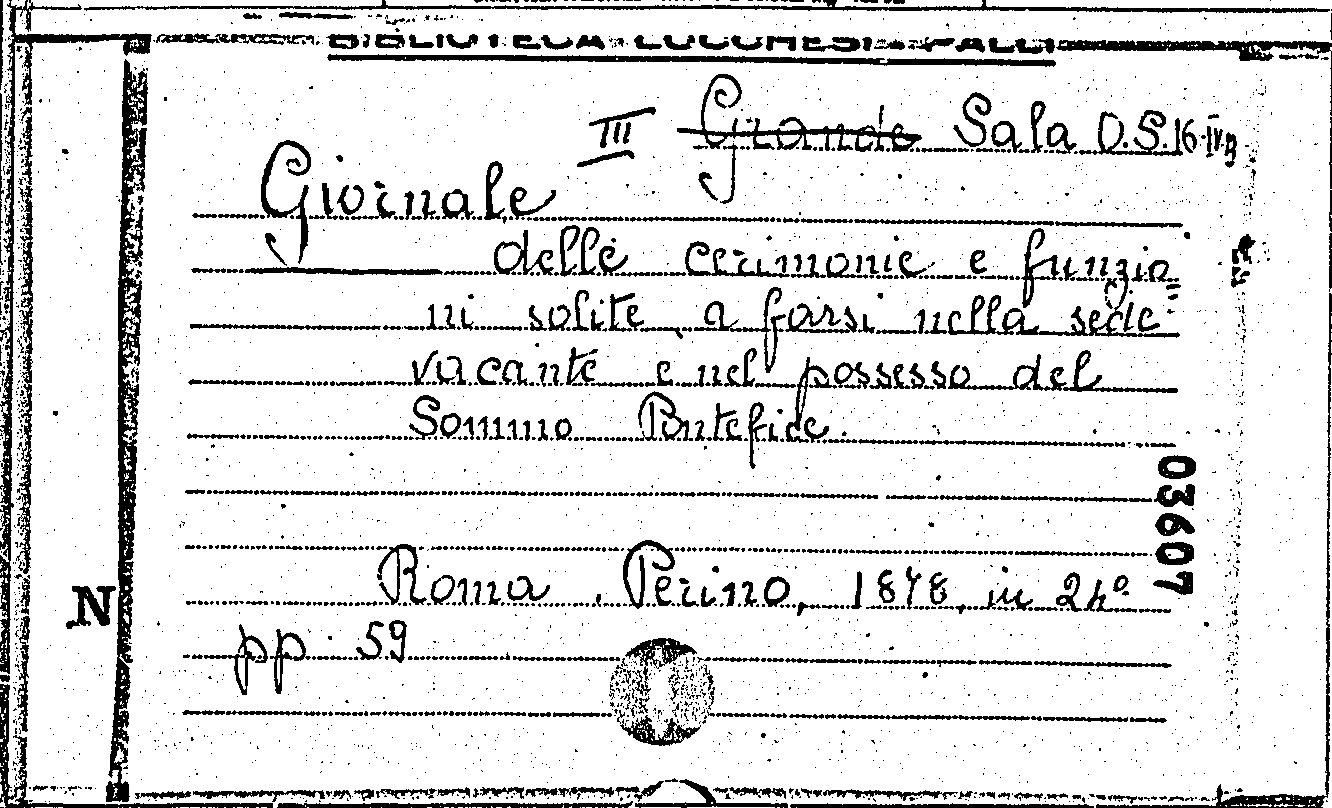 BIBLIOTECA LUCCHESI - PALLI
III Grande Sala O.S.16.IV.
Giornale
delle cerimonie e funzio=
ni solite a farsi nella sede
vacante e nel possesso del
Sommo Pontefice.
03607
Roma, Perino, 1878, in 24°
pp. 59
N